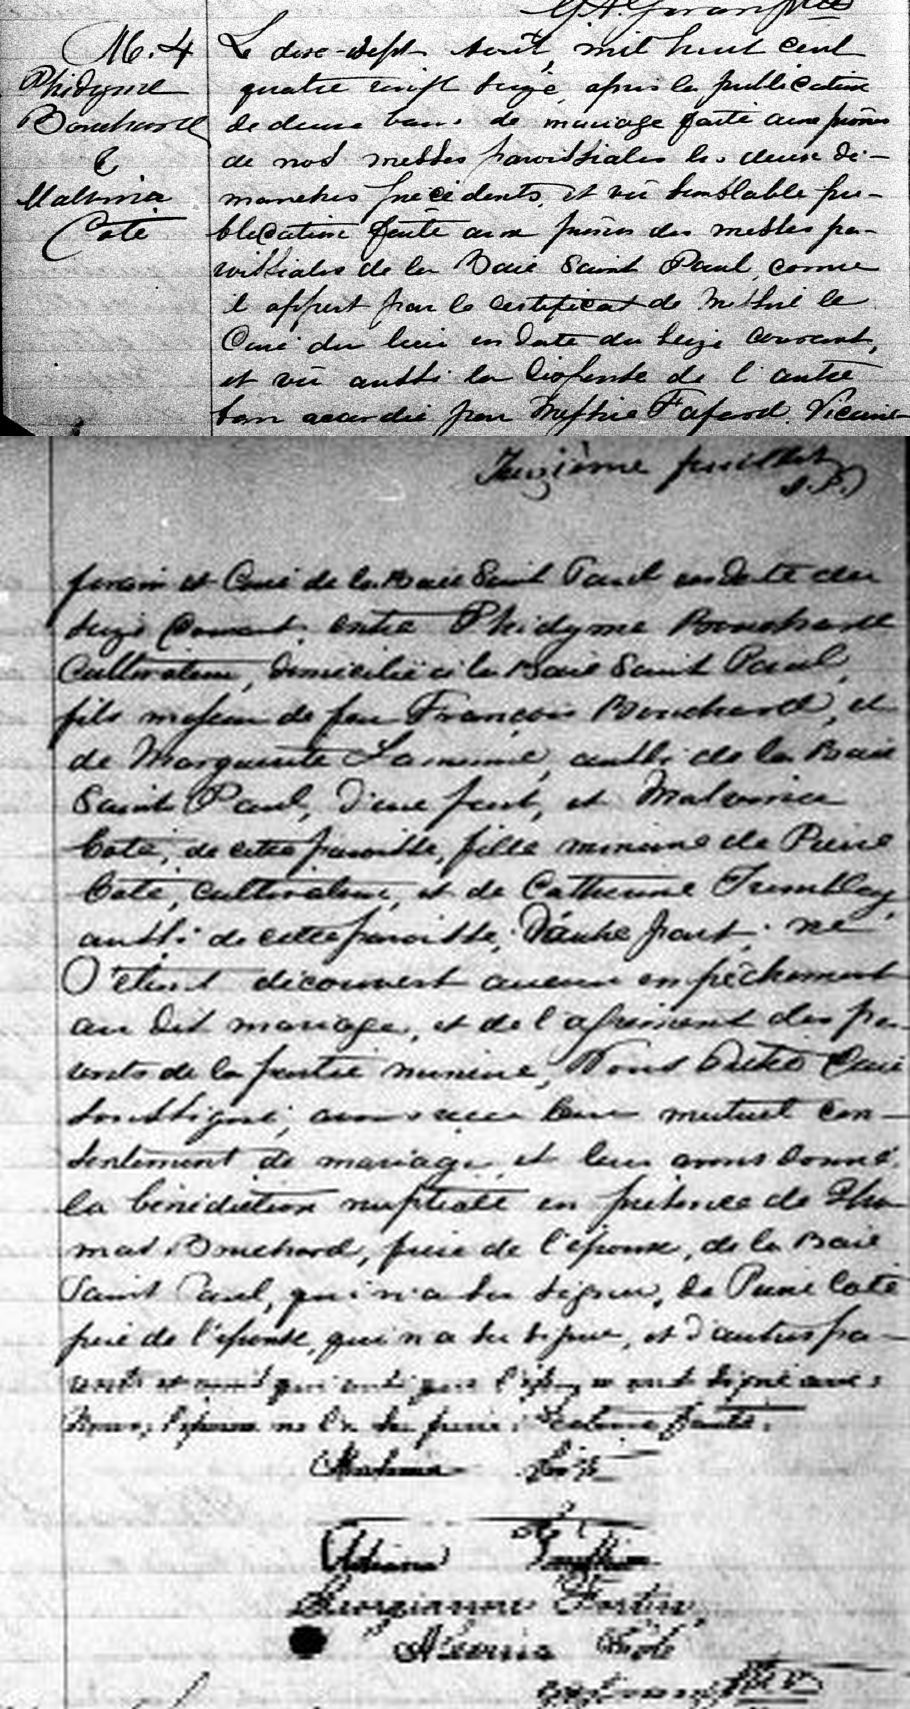 M. 4
Phidyme
Bouchard
&
Malvina
Coté
Le dix-sept août, mil huit cent
quatre vingt seize, après la publication
de deux bans de mariage faite aux prônes
de nos messes paroissiales les deux di-
manches précédents, et vû semblable pu-
blication faite aux prônes des messes pa-
roissiales de la Baie Saint Paul, comme
il appert par le certificat de Messire le
Curé du lieu en date du seize courant,
et vû aussi la dispense de l'autre
ban accordée par Messire Fafard Vicaire
feuillet
forain et Curé de la Baie Saint Paul en date du
seize courant, entre Phidyme Bouchard
Cultivateur, domicilié à la Baie Saint Paul,
fils majeur de feu François Bouchard, et
de Marguerite, aussi de la Baie
Saint Paul, d'une part, et Malvina
Coté, de cette paroisse, fille mineure de Pierre
Coté, cultivateur, et de Catherine Tremblay,
aussi de cette paroisse, d'autre part; ne
s'étant découvert aucun empêchement
au dit mariage, et de l'agrément des pa-
rents de la partie mineure, Nous Prêtre Curé
soussigné, avons reçu leur mutuel con-
sentement de mariage et leur avons donné
la bénédiction nuptiale en présence de Tho-
mas Bouchard, frère de l'époux, de la Baie
Saint Paul, qui n'a su signer, de Pierre Coté
père de l'épouse, qui n'a su signer, et d'autres pa-
rents et amis qui ont signé avec
Nous, Lecture faite.
Georgianne Fortin,